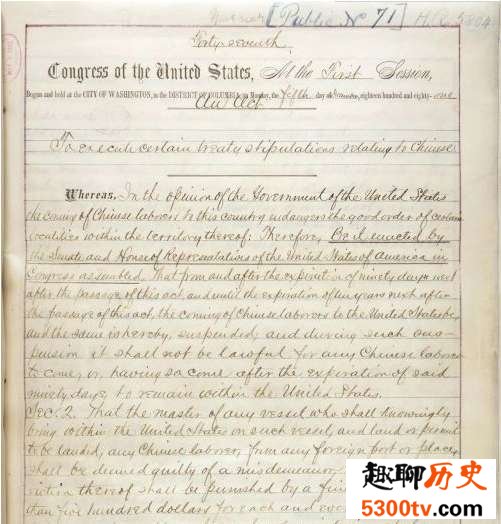 [Public No 71] H.R. 5804
Forty-seventh
Congress of the United States, At the First Session,
Begun and held at the CITY OF WASHINGTON, in the DISTRICT OF COLUMBIA, on Monday, the fifth day of December, eighteen hundred and eighty-one
An Act
To execute certain treaty stipulations relating to Chinese
Whereas, In the opinion of the Government of the United States
the coming of Chinese laborers to this country endangers the good order of certain
localities within the territory thereof: Therefore, Be it enacted by
the Senate and House of Representatives of the United States of America in
Congress assembled, That from and after the expiration of ninety days next
after the passage of this act, and until the expiration of ten years next after
the passage of this act, the coming of Chinese laborers to the United States be,
and the same is hereby, suspended; and during such sus-
pension it shall not be lawful for any Chinese laborer
to come, or, having so come after the expiration of said
ninety days, to remain within the United States.
SEC. 2. That the master of any vessel who shall knowingly
bring within the United States on such vessel, and land or permit
to be landed, any Chinese laborer, from any foreign port or place,
shall be deemed guilty of a misdemeanor,
thereof shall be punished by a fine
than five hundred dollars for each and every
趣聊历史
5300tv.com